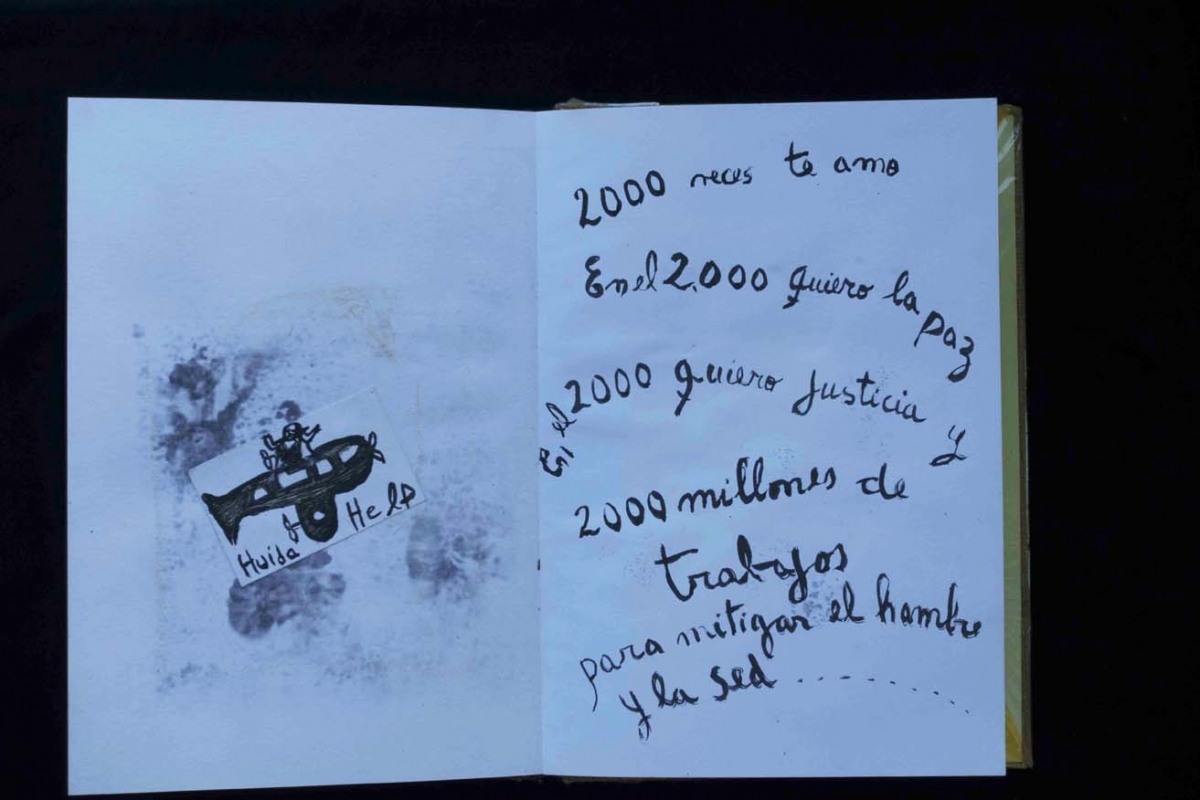 Huida
Help
2000 veces te amo
En el 2.000 quiero la paz
En el 2000 quiero Justicia y
2000 millones de
trabajos
para mitigar el hambre
y la sed...........